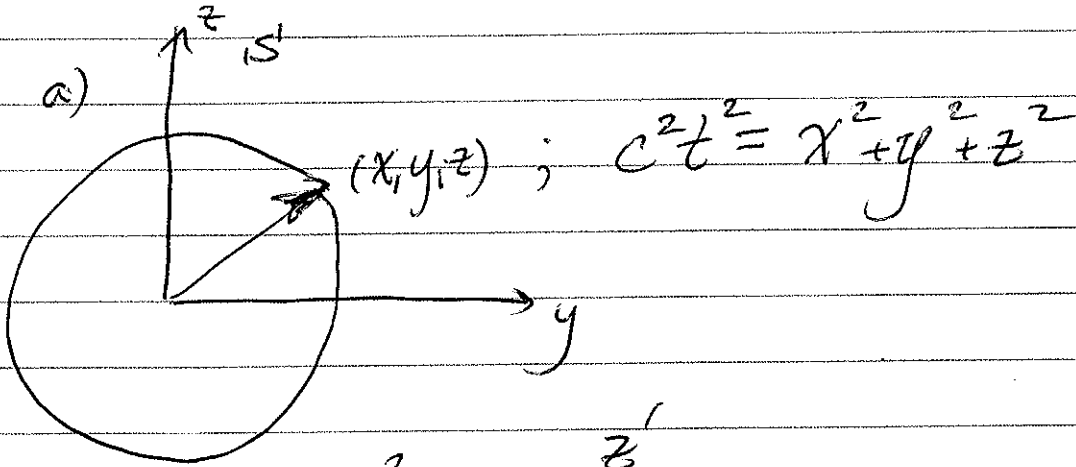 z
S
a)
(x,y,z) ; c²t² = x²+y²+z²
y
z'